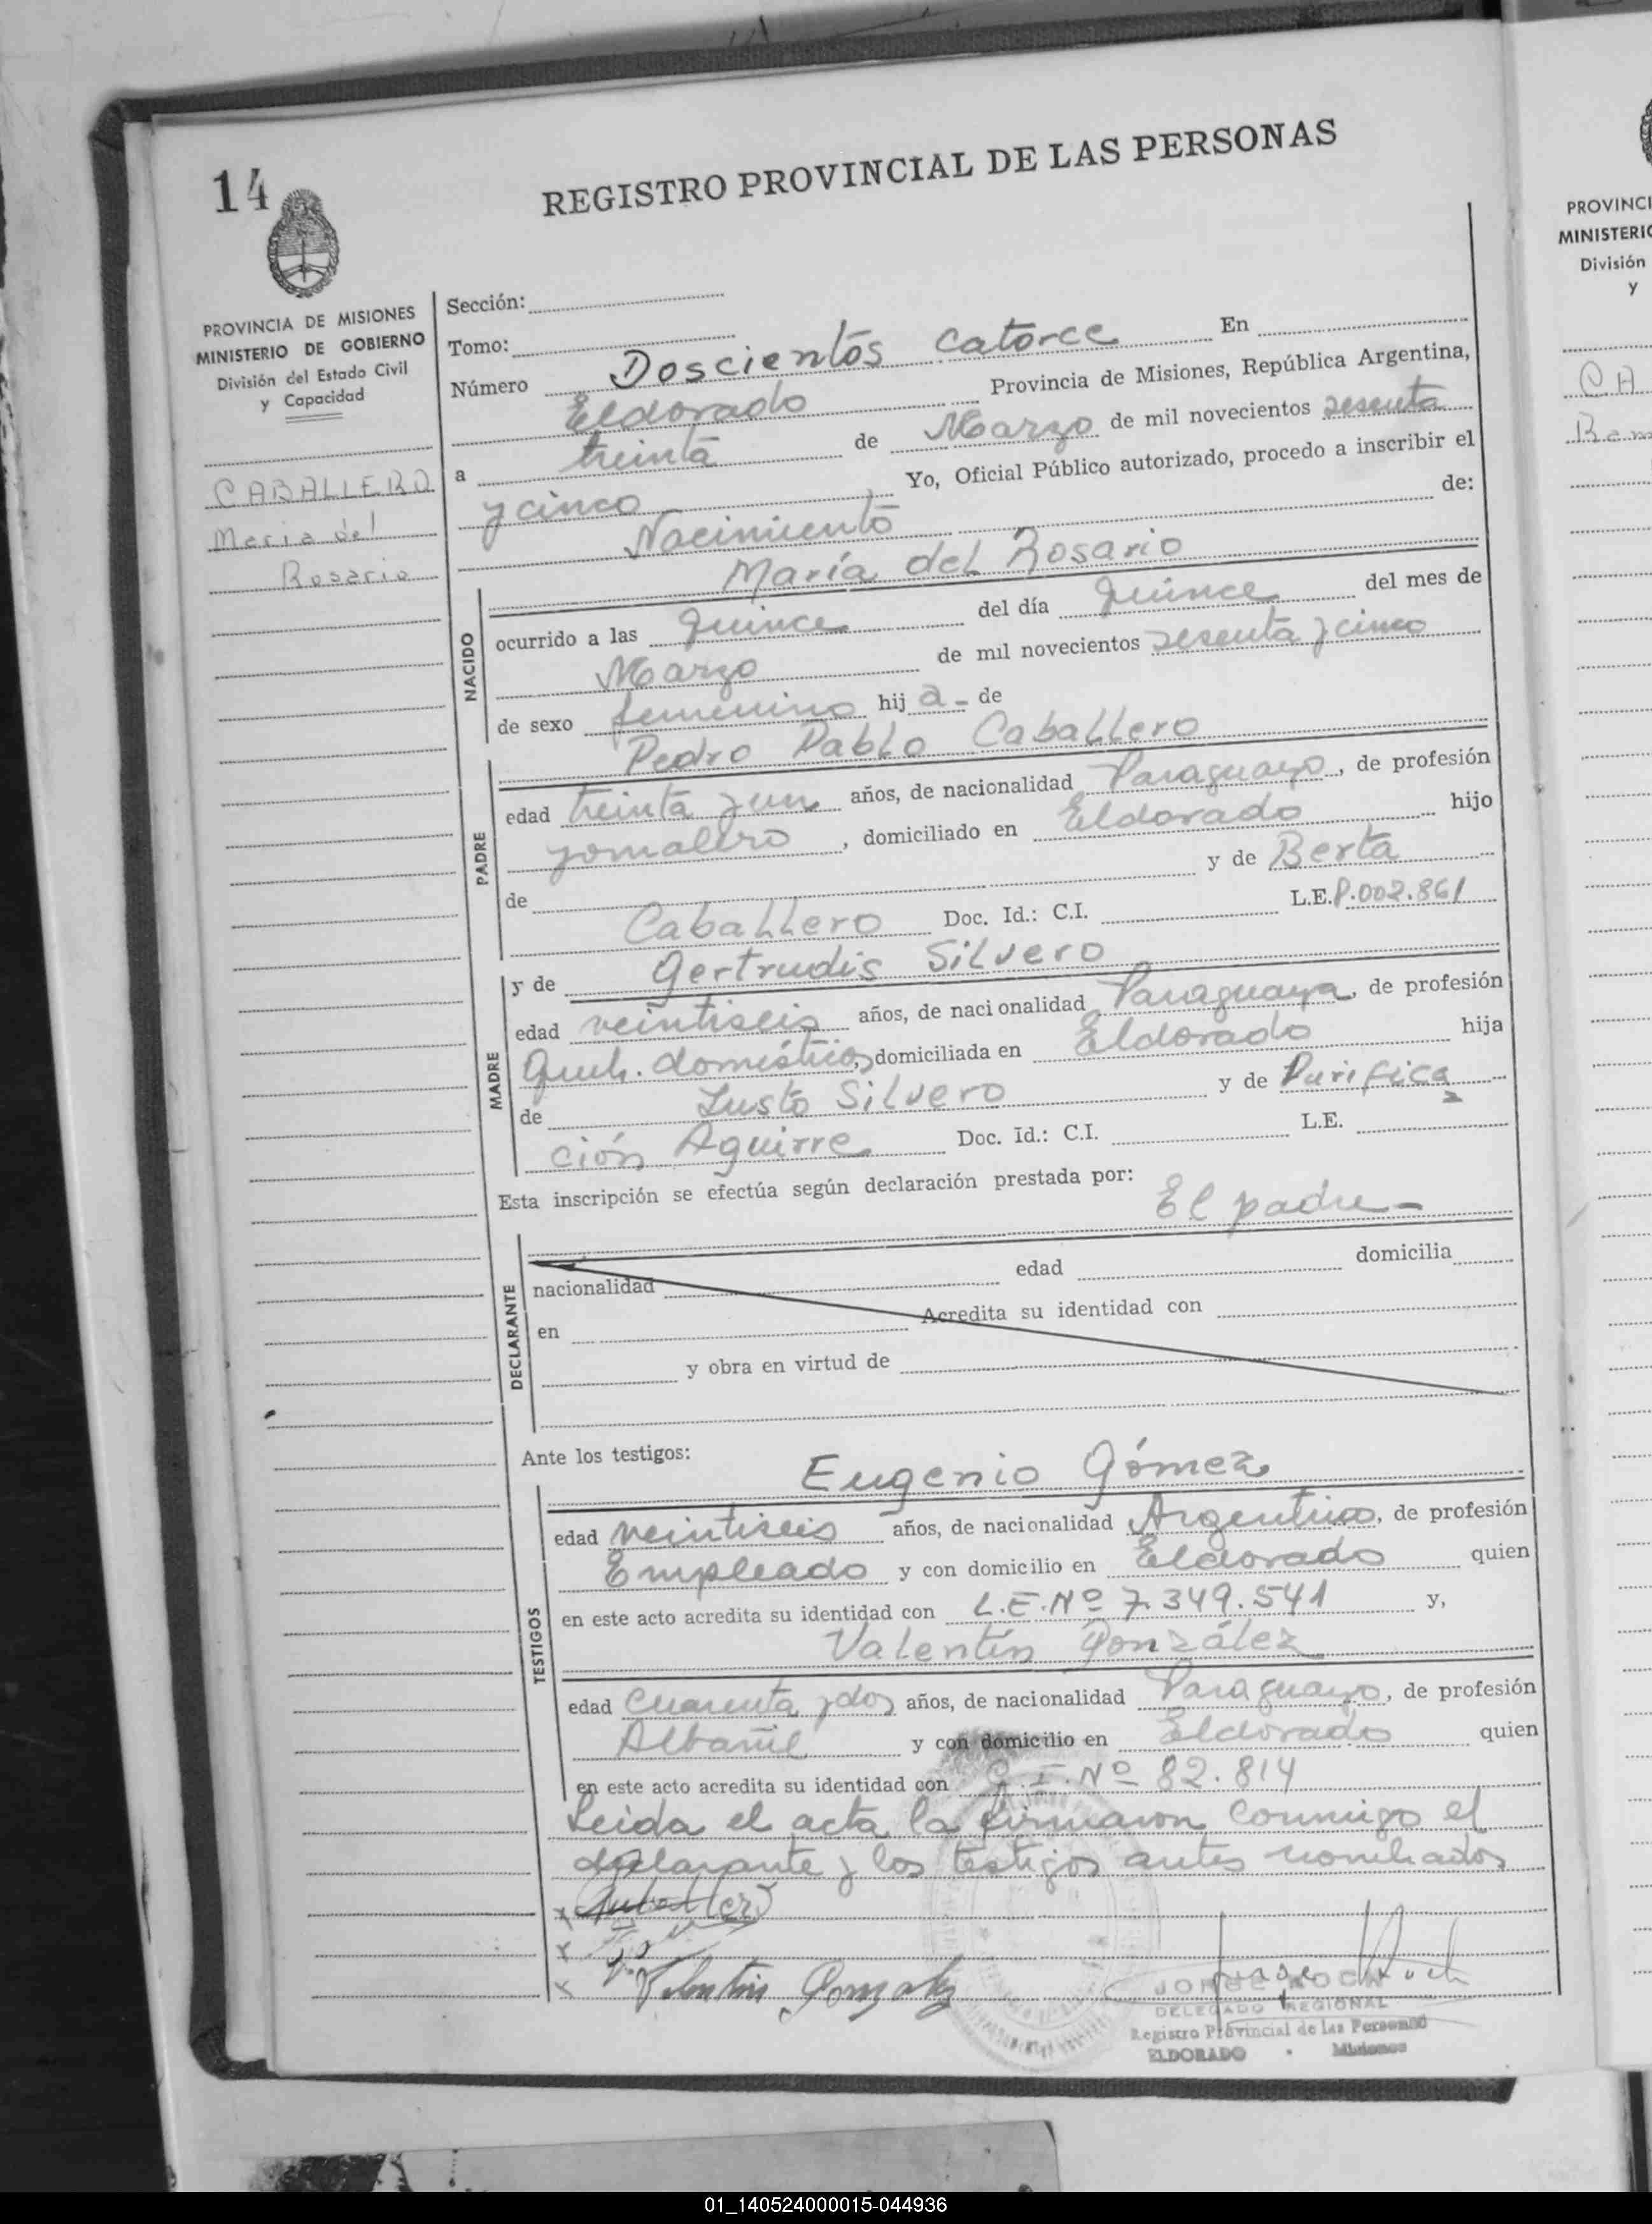 14
REGISTRO PROVINCIAL DE LAS PERSONAS
PROVINCIA DE MISIONES
MINISTERIO DE GOBIERNO
División del Estado Civil
y Capacidad
CABALLERO
Maria del
Rosario
Sección:
Tomo:
Número Doscientos catorce En
Eldorado Provincia de Misiones, República Argentina,
a treinta de Marzo de mil novecientos sesenta
y cinco Yo, Oficial Público autorizado, procedo a inscribir el
Nacimiento de:
María del Rosario
NACIDO
ocurrido a las quince del día quince del mes de
Marzo de mil novecientos sesenta y cinco
de sexo femenino hij a - de
Pedro Pablo Caballero
PADRE
edad treinta y un años, de nacionalidad Paraguayo, de profesión
jornalero, domiciliado en Eldorado hijo
de y de Berta
Caballero Doc. Id.: C.I. L.E. P.002.861
y de Gertrudis Silvero
MADRE
edad veintiseis años, de nacionalidad Paraguaya, de profesión
Queh. domésticos, domiciliada en Eldorado hija
de Justo Silvero y de Purifica
ción Aguirre Doc. Id.: C.I. L.E.
Esta inscripción se efectúa según declaración prestada por:
El padre -
DECLARANTE
nacionalidad edad domicilia
en Acredita su identidad con
y obra en virtud de
Ante los testigos:
Eugenio Gómez
TESTIGOS
edad veintiseis años, de nacionalidad Argentino, de profesión
Empleado y con domicilio en Eldorado quien
en este acto acredita su identidad con L.E.Nº 7.349.541 y,
Valentín González
edad cuarenta y dos años, de nacionalidad Paraguayo, de profesión
Albañil y con domicilio en Eldorado quien
en este acto acredita su identidad con C.I.Nº 82.814
Leida el acta la firmaron conmigo el
declarante y los testigos antes nombrados
x
x
x Valentin Gonzalez
JORGE KOCH
DELEGADO REGIONAL
Registro Provincial de las Personas
ELDORADO - Misiones
PROVINCI
MINISTERIO
División
y
CA
01_140524000015-044936